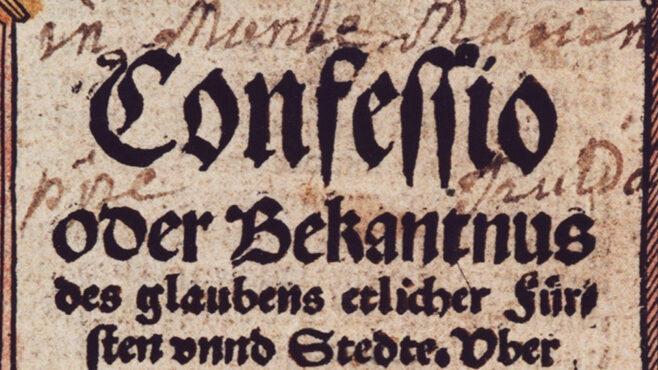 in Monte Marian
Confessio
oder Bekantnus
des glaubens etlicher Für⸗
sten vnnd Stedte. Vber